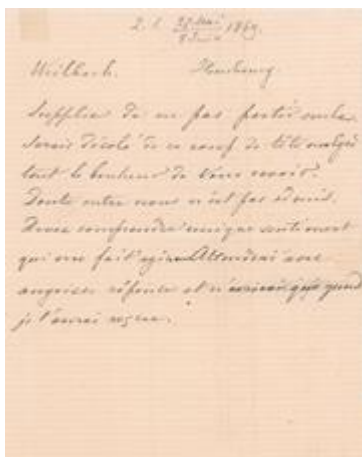 27 Mai
8 Juin 1869.
Weilbach. Hombourg
Supplie de ne pas partir
Serais désolé de ce coup de tête malgré
tout le bonheur de vous revoir.
Doute entre nous n'est pas admis.
comprendre unique sentiment
qui me fait agir. Attendrai avec
angoisse réponse et n'écrirai que quand
je l'aurai reçue.